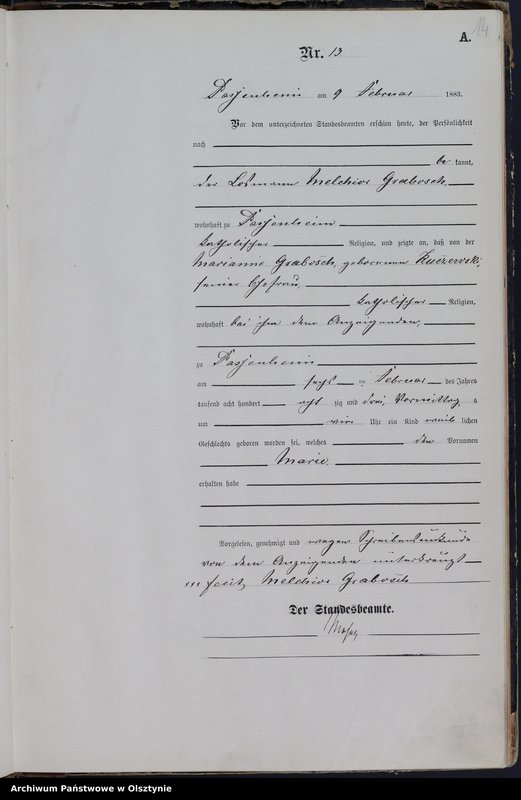 14
A.
Nr. 13
Passenheim am 9 Februar 1883.
Vor dem unterzeichneten Standesbeamten erschien heute, der Persönlichkeit
nach
be kannt,
der Losmann Melchior Grabosch
wohnhaft zu Passenheim
katholischer Religion, und zeigte an, daß von der
Marianne Grabosch, geborenen
seiner Ehefrau,
katholischer Religion,
wohnhaft bei ihm dem Anzeigenden,
zu Passenheim
am sechs ten Februar des Jahres
tausend acht hundert acht zig und drei, Vormittags
um vier Uhr ein Kind weib lichen
Geschlechts geboren worden sei, welches den Vornamen
Marie
erhalten habe
Vorgelesen, genehmigt und wegen Schreibensunkunde
von dem Anzeigenden unterkreuzt
fecit Melchior Grabosch
Der Standesbeamte.
Archiwum Państwowe w Olsztynie